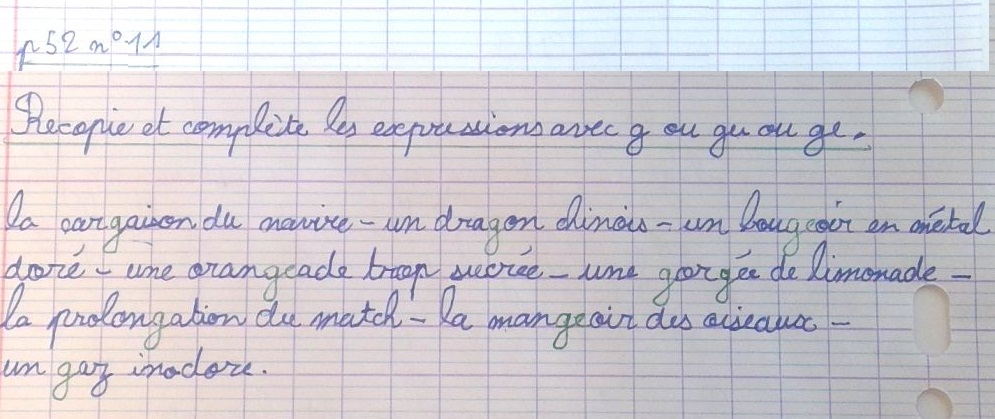 p 52 n° 11
Recopie et complète les expressions avec g ou gu ou ge.
la cargaison du navire - un dragon chinois - un bougeoir en métal
doré - une orangeade trop sucrée - une gorgée de limonade -
la prolongation du match - la mangeoir des oiseaux -
un gaz inodore.